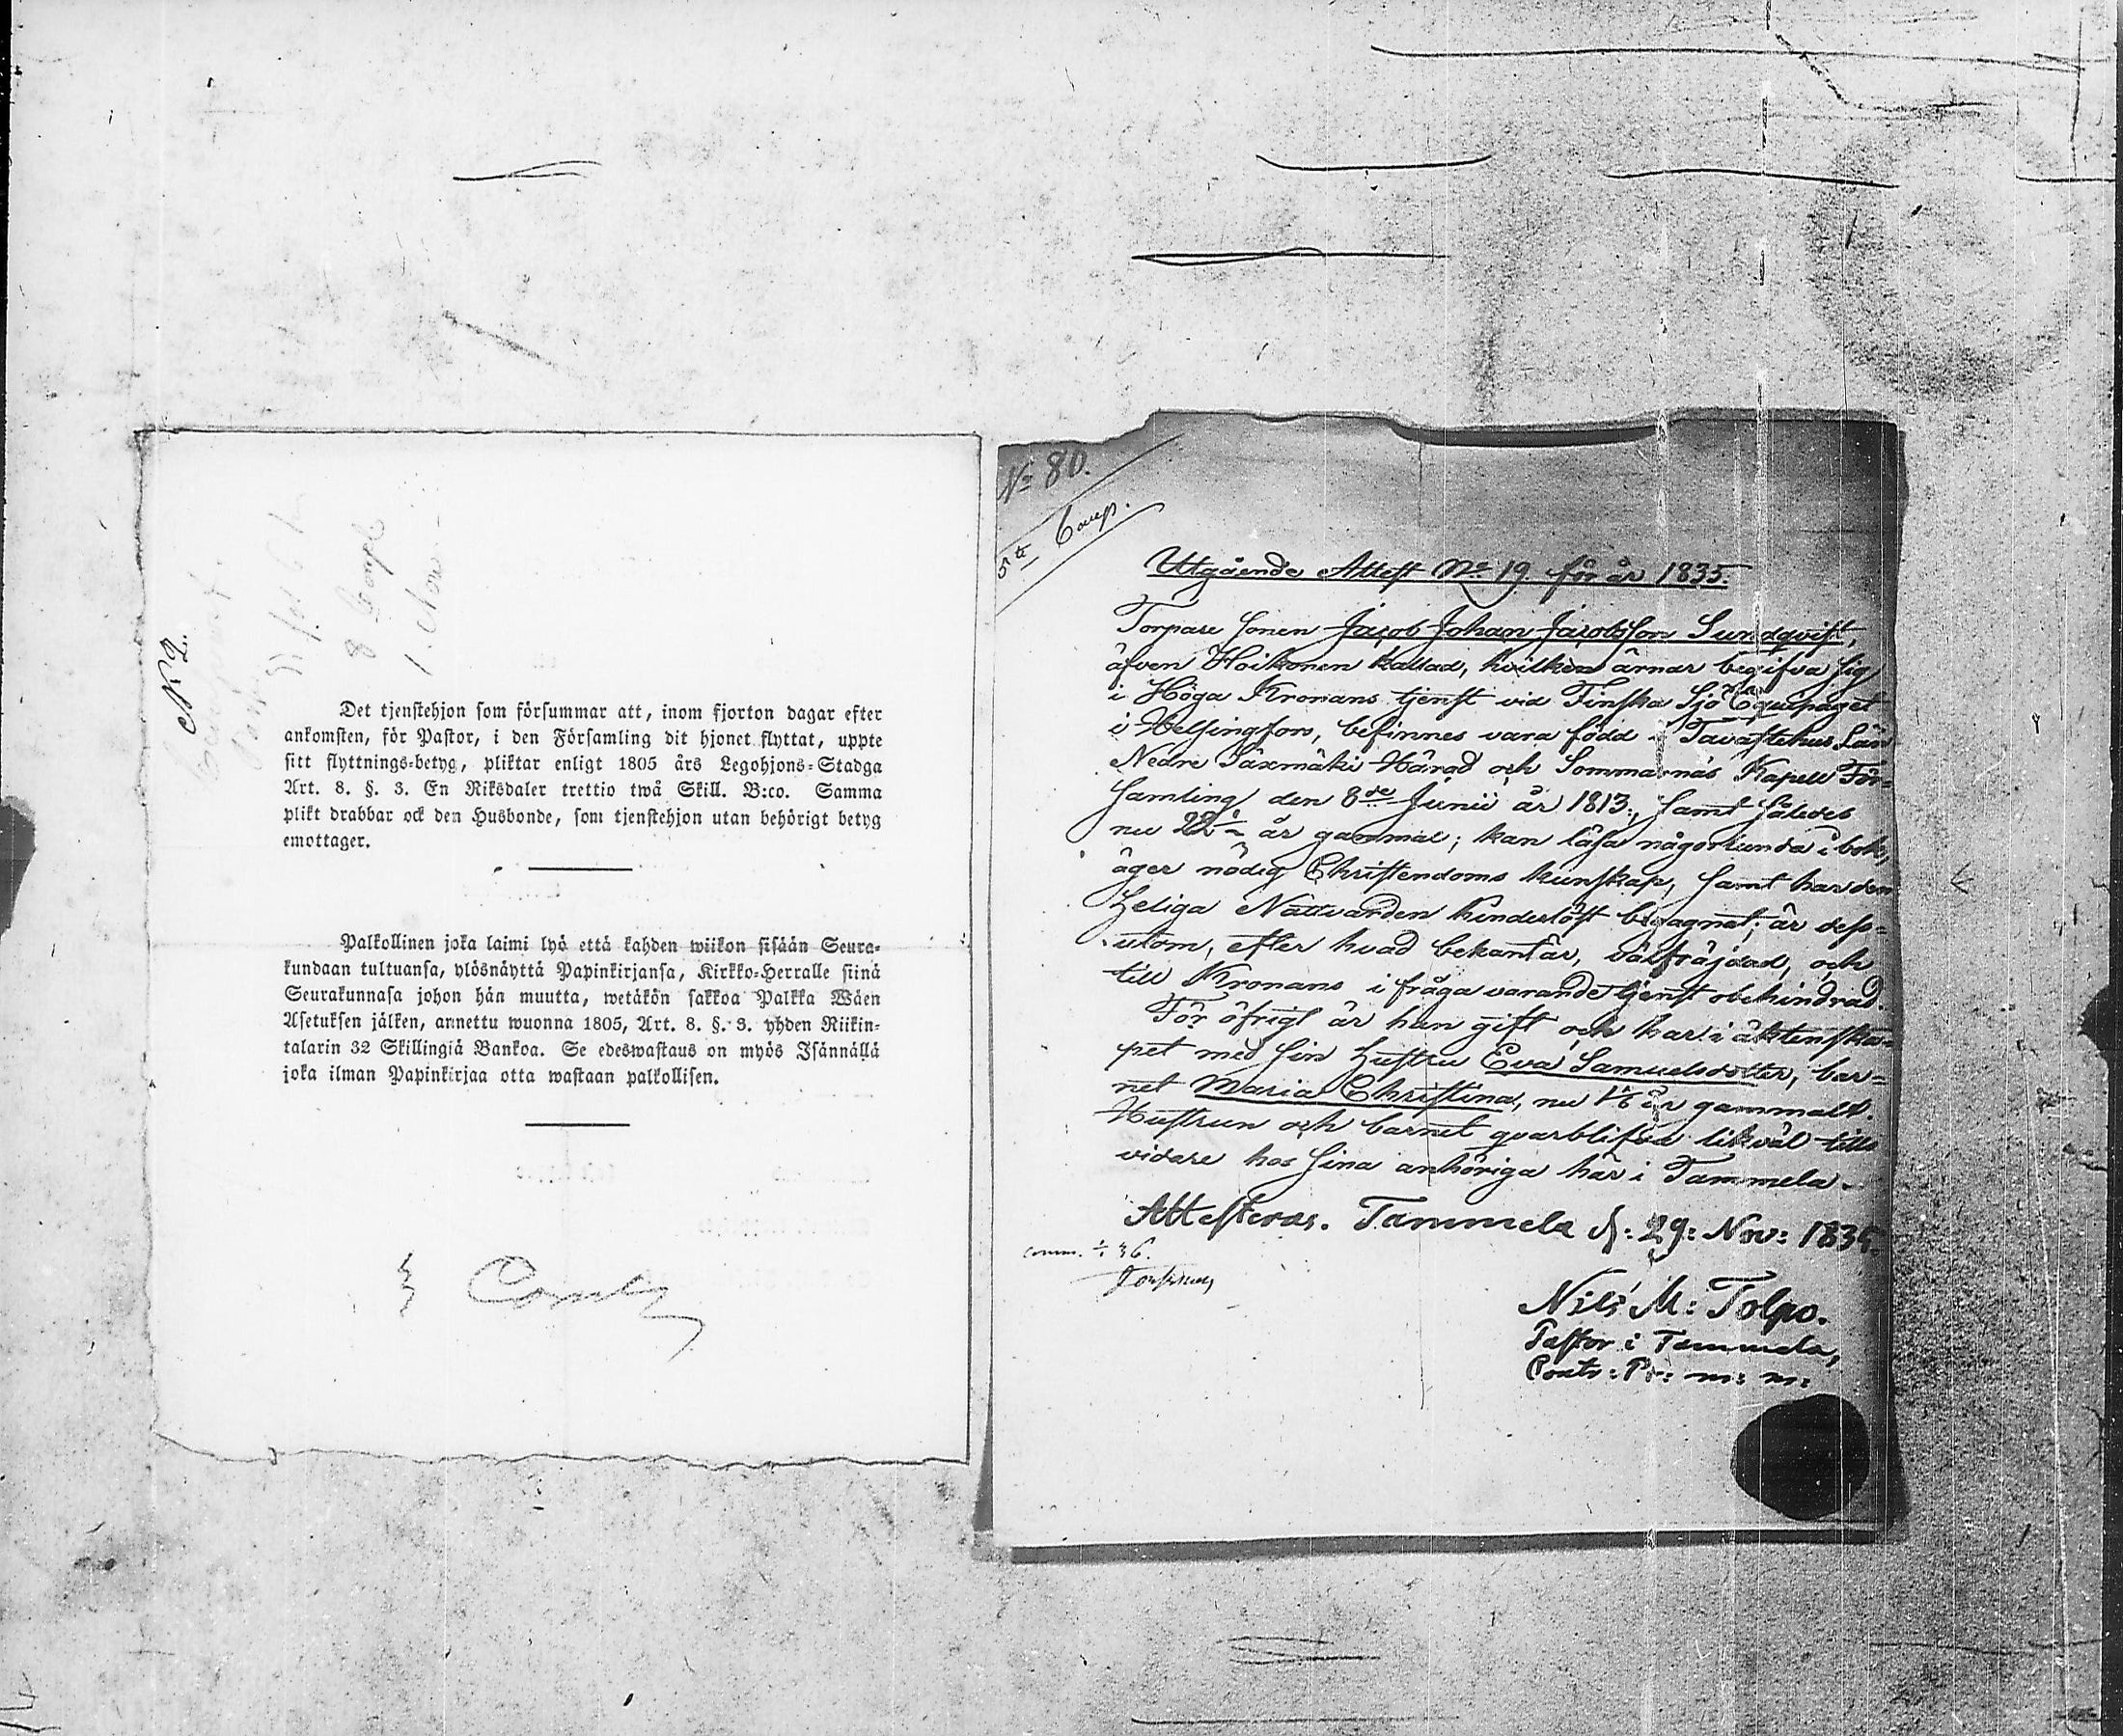 N:o 2.
8 Comp
Det tjenstehjon som försummar att, inom fjorton dagar efter
ankomsten, för Pastor, i den Församling dit hjonet flyttat, uppte
sitt flyttnings-betyg, pliktar enligt 1805 års Legohjons-Stadga
Art. 8. §. 3. En Riksdaler trettio twå Skill. B:co. Samma
plikt drabbar ock den Husbonde, som tjenstehjon utan behörigt betyg
emottager.
Palkollinen joka laimi lyö että kahden wiikon sisään Seura-
kundaan tultuansa, ylösnäyttä Papinkirjansa, Kirkko-Herralle siinä
Seurakunnasa johon hän muutta, wetäkön sakkoa Palkka Wäen
Asetuksen jälken, annettu wuonna 1805, Art. 8. §. 3. yhden Riikin-
talarin 32 Skillingiä Bankoa. Se edeswastaus on myös Isännällä
joka ilman Papinkirjaa otta wastaan palkollisen.
N:o 80.
5te Comp.
Utgående Attest No 19 för år 1835.
Torpare sonen Jacob Johan Jacobsson Sundqvist,
äfven Hoikonen kallad, hvilken ärnar begifva sig
i Höga Kronans tjenst vid Finska Sjö Equipaget
i Helsingfors, befinnes vara född i Tavastehus Län
Nedre Saxmäki Härad och Sommarnäs Kapell För=
samling den 8de Junii år 1813, samt således
nu 22½ år gammal; kan läsa någorlunda i bok,
äger nödig Christendoms kunskap, samt har den
Heliga Nattvarden hinderlöst begagnat; är dess=
utom, efter hvad bekant är, välfräjdad, och
till Kronans i fråga varande tjenst obehindrad.
För öfrigt är han gift och har i äktenska=
pet med sin hustru Eva Samuelsdotter, bar=
net Maria Christina, nu 1/6 år gammalt.
Hustrun och barnet qvarblifva likväl tills
vidare hos sina anhöriga här i Tammela.
Attesteras. Tammela d: 29: Nov: 1835.
Nils M: Tolpo.
Pastor i Tammela,
Contr: Pr: m: m: